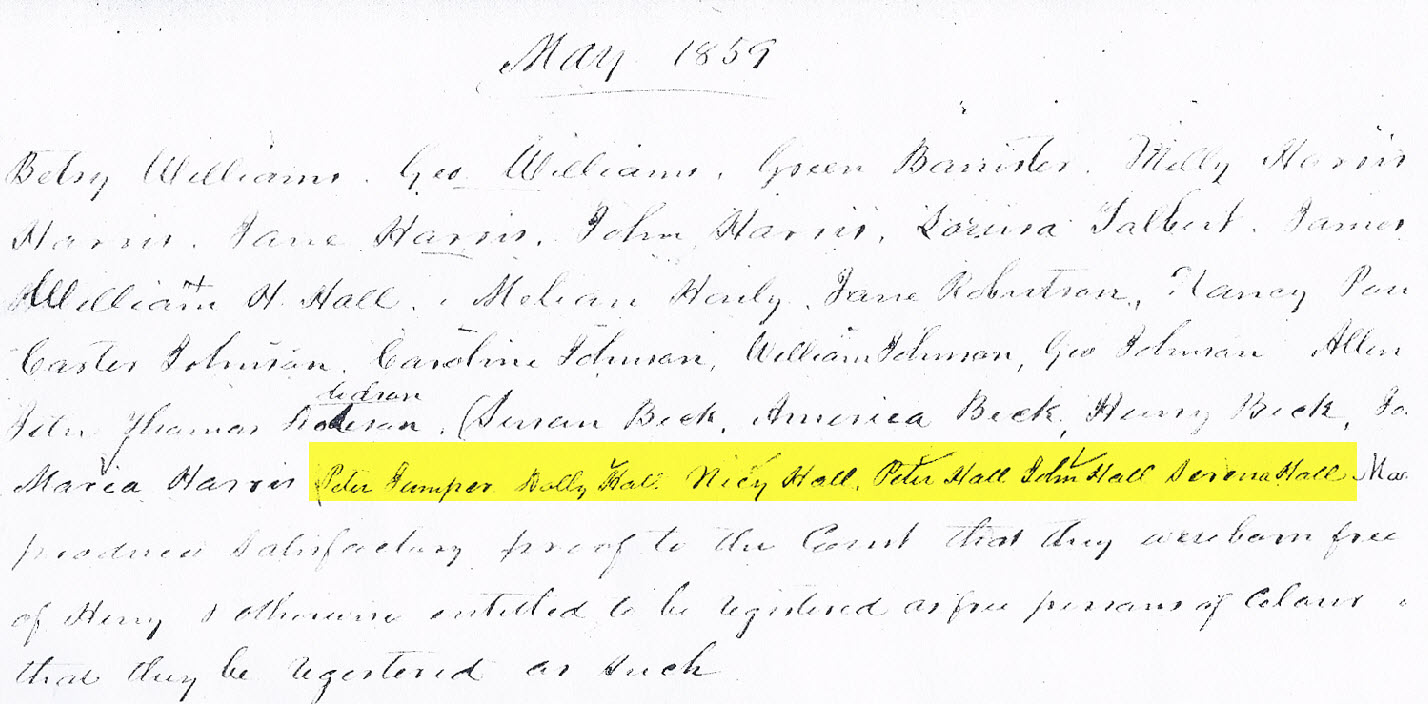 May 1859
Betsy Williams. Geo Williams, Green Barrister. Milly Harris
Harris. Jane Harris, John Harris, Louisa Talbert. James
William H. Hall. Jane Robertson, Nancy
Carter Johnson, Caroline Johnson, William Johnson, Geo Johnson Allen
dedson
Thomas (Susan Beck, America Beck, Henry Beck,
Maria Harris (Peter Jumper Holly Hall Nicy Hall, Peter Hall John Hall Serena Hall
produced satisfactory proof to the Court that they were born free
of Henry & otherwise entitled to be registered as free persons of Colour
that they be registered as such